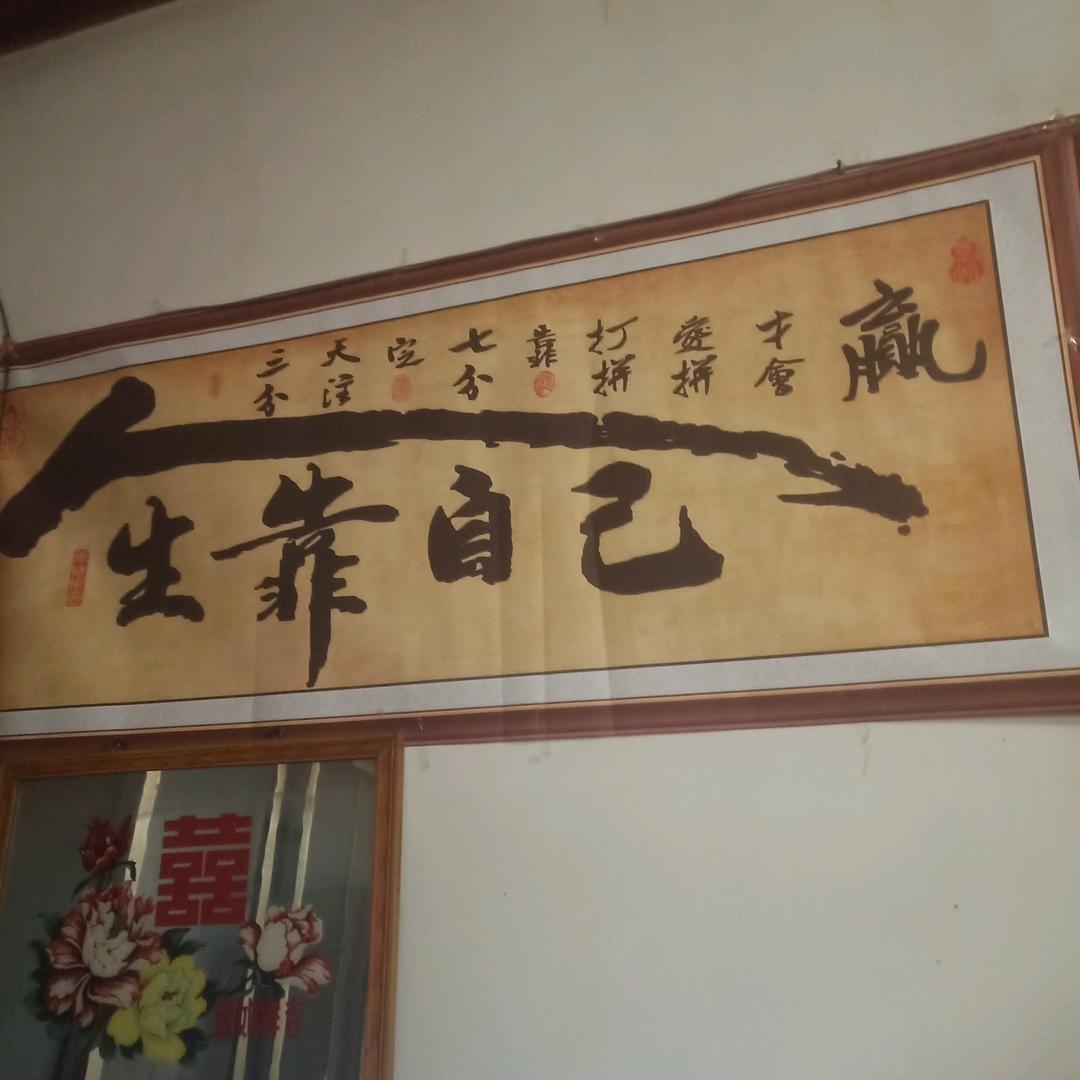 三分天注定七分靠打拼愛拼才會贏
人生靠自己
囍